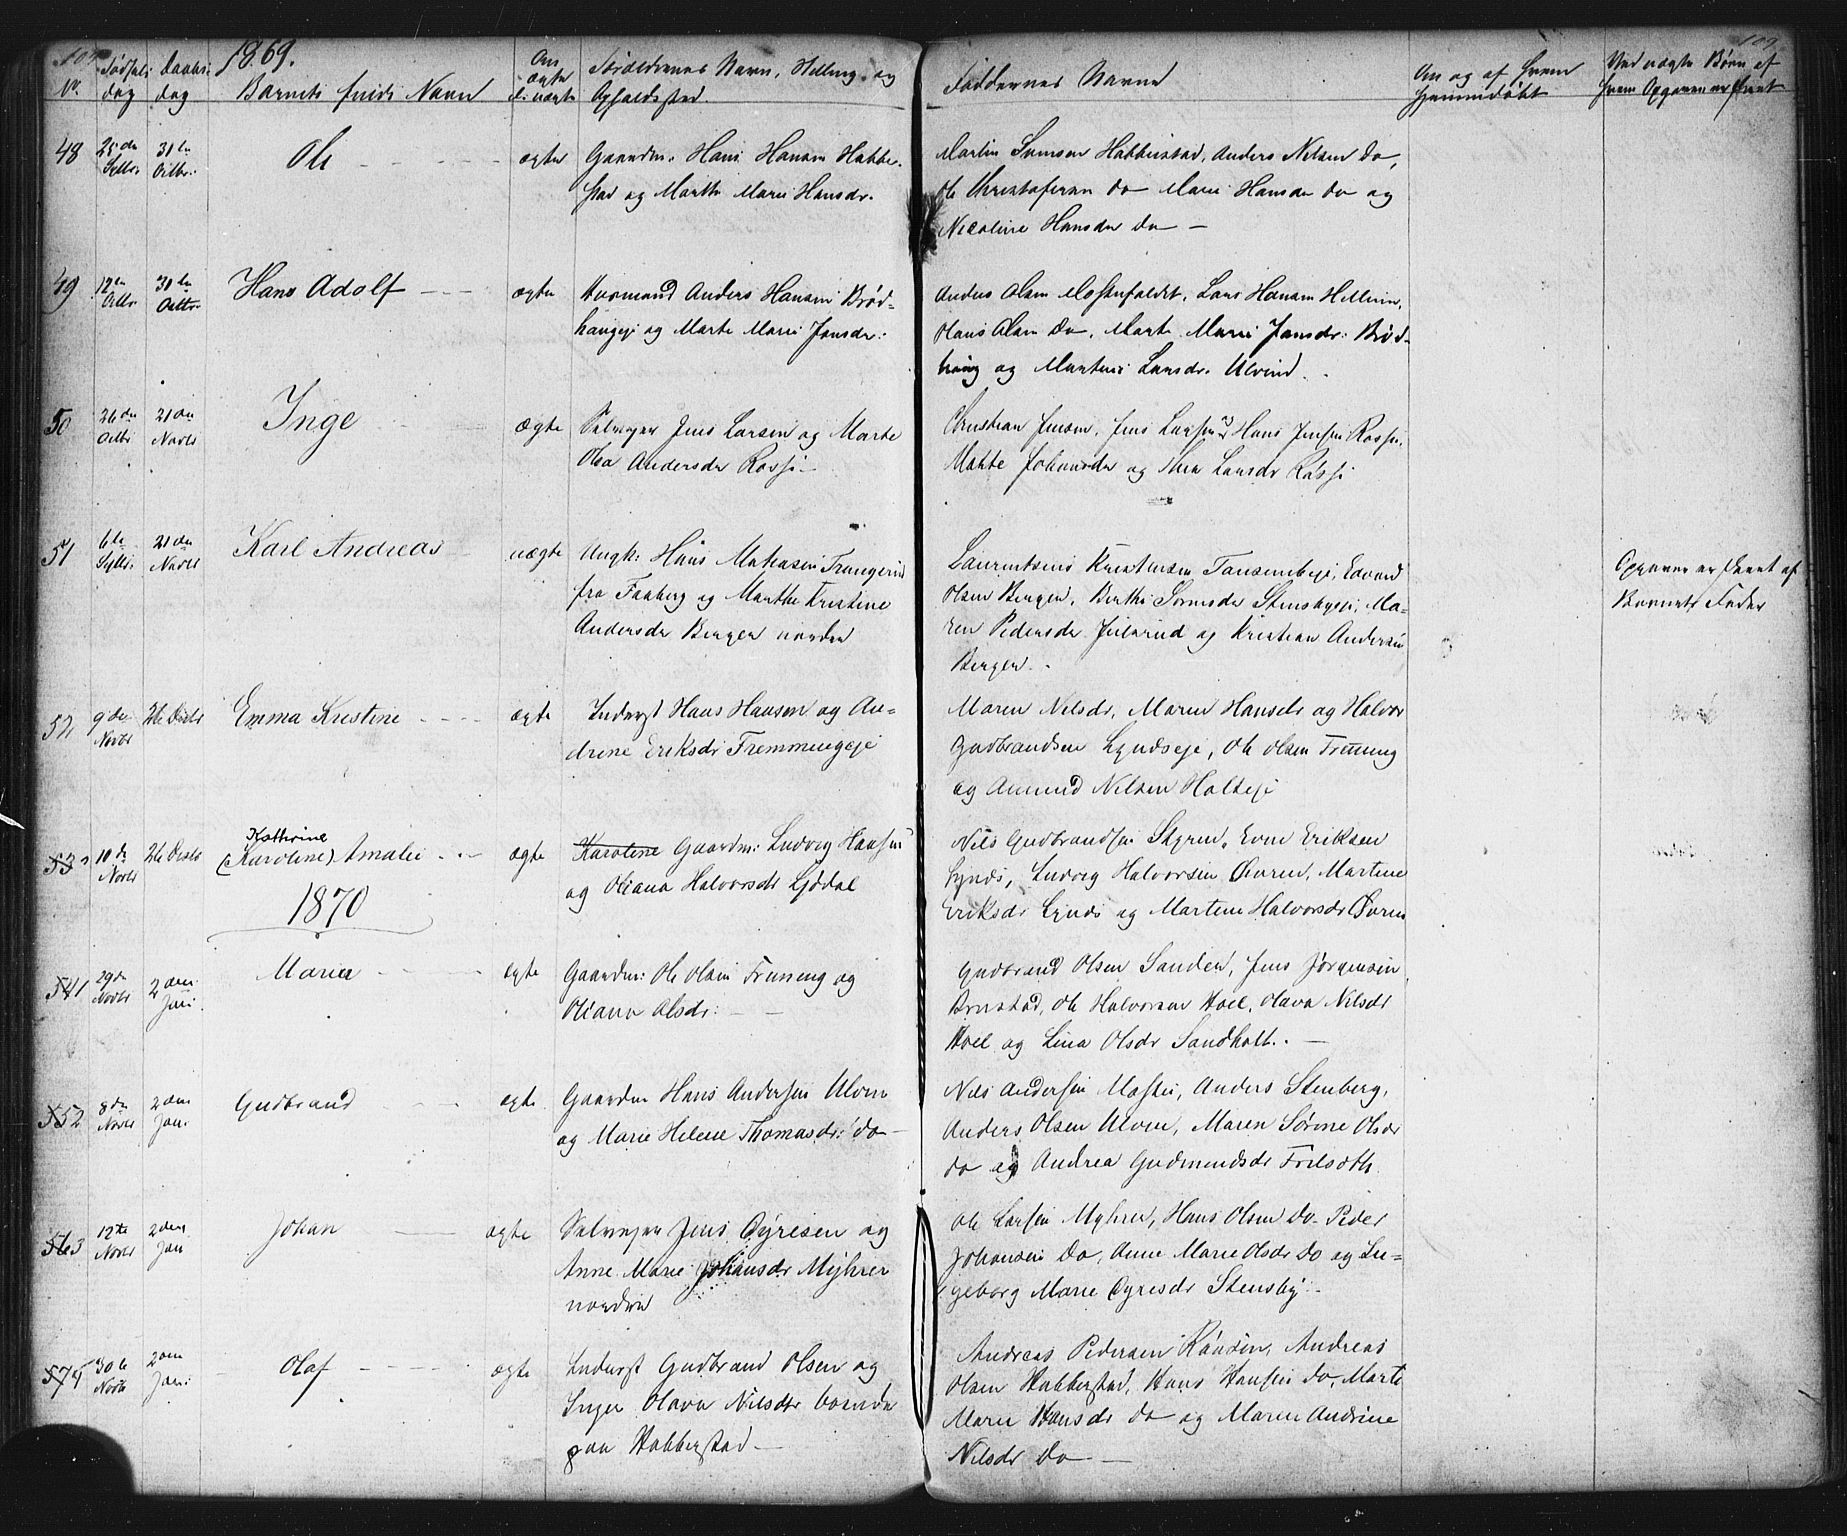 1869.
No. Fødsels dag Daabs dag Barnets fulde Navn Om ægte el. uægte Forældrenes Navn, Stilling og Opholdssted. Faddernes Navne Om og af hvem hjemmedøbt Ved uægte Børn af hvem Opgaven er skeet
109
48 25de Septbr. 31te Octbr. Ole ægte Gaardm. Hans Hansen Habber-
stad og Marthe Marie Hansdr.
Martin Svensen Habberstad, Anders Nilsen do,
Ole Christofersen do Marie Hansdr do og
Nicoline Hansdr do
49 12te Octbr. 31te Octbr. Hans Adolf ægte Huusmand Anders Hansen Brød-
hangeje og Marte Marie Jonsdr.
Anders Olsen Mostufaldet, Lars Hansen
Hans Olsen do, Marte Marie Jonsdr: Brød-
hang og Larsdr. Ulvind.
50 26de Octbr 21de Novbr Inge ægte Selvejer Jens Larsen og Marte
Olea Andersdr
Christian Jensen, Jens Larsen, Hans Jensen
og Larsdr
51 6te Septbr. 21de Novbr Karl Andreas uægte Ungk: Hans Matiasen
fra Faaberg og Marthe Kristine
Andersdr Berger nordre
Laurentsius Kristensen Edvard
Olsen Berger, Berthe Stensbyeje, Ma-
ren Pedersdr og Kristian Andersen
Berger.
Opgaven er skeet af
Barnets Fader
52 9de Novbr 26 Decbr Emma Kristine ægte Inderst Hans Hansen og An-
drine Eriksdr Fremmingeje
Maren Nilsdr, Maren Hansdr og Halvor
Gudbrandsen Lyndseje, Ole Olsen
og Amund Nilsen Holteje
53 10de Novbr 26 Decbr Kathrine
(Karoline) Amalie ægte Karoline Gaardm: Ludvig Hansen
og Oliana Halvorsdr Ljødal
Nils Gudbrandsen Styren, Even Eriksen
Lynds, Ludvig Halvorsen Øvren, Martine
Eriksdr Lynds og Martine Halvorsdr Øvren
1870
541 29de Novbr 2den Jan. Maria ægte Gaardm: Ole Olsen og
Oliana Olsdr:
Gudbrand Olsen Sanden, Jens Jørgensen
Ole Halvorsen Hoel, Olava Nilsdr
Hoel og Lina Olsdr Sandholt.
552 8de Novbr 2den Jan. Gudbrand ægte Gaardm Hans Andersen Ulven
og Marie Helene Thomasdr: do
Nils Andersen Anders Stenberg,
Anders Olsen Ulven, Maren Sørine Olsdr
do og Andrea Gudmundsdr
563 12te Novbr 2den Jan Johan ægte Selvejer Jens Cyresen og
Anne Marie Johansdr Myhrer
nordre
Ole Larsen Myhrer, Hans Olsen do. Peder
Johansen do, Anne Marie Olsdr do og In-
geborg Marie Cyresdr Stensby.
574 30te Novbr 2den Jan. Olaf ægte Inderst Gudbrand Olsen og
Inger Olava Nilsdtr boende
paa Habberstad
Andreas Pedersen Andreas
Olsen Habberstad, Hans Hansen do, Marte
Marie Hansdr do og Maren Andrine
Nilsdr do